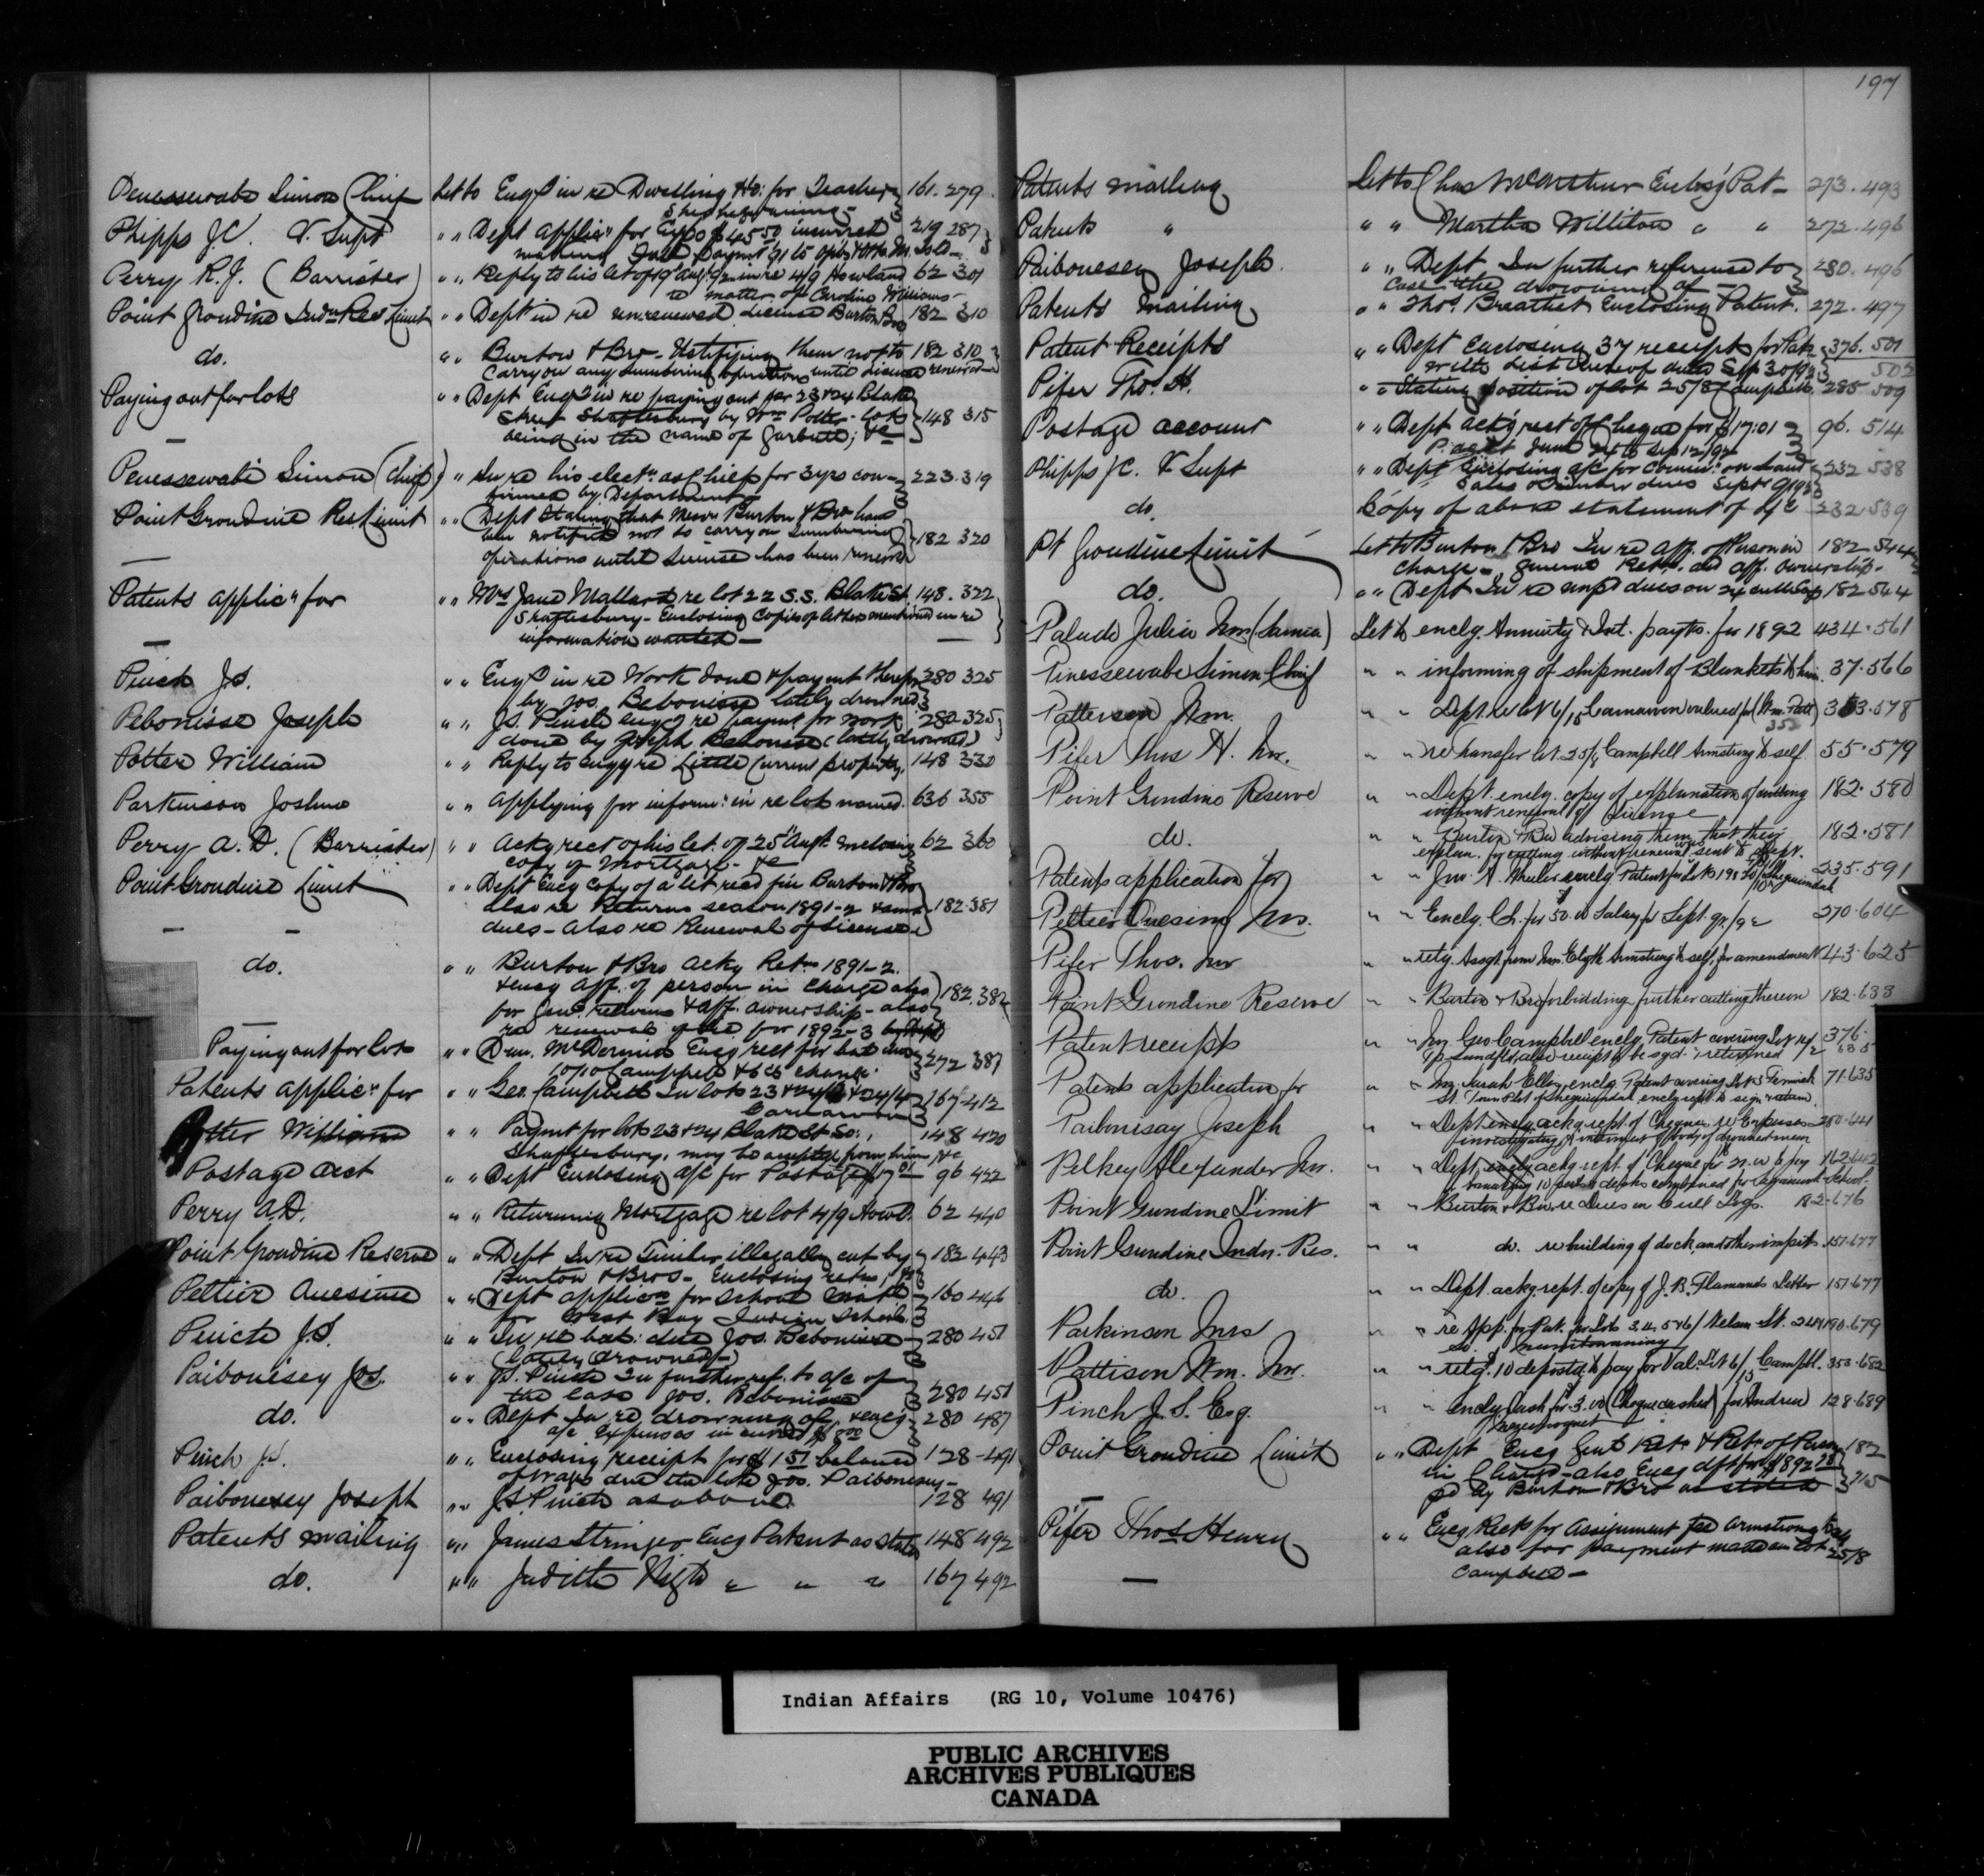 197
Penessewabe Simon Chief Let to Engd in re Dwelling Ho: for Teacher 161. 279
Sheshegwaning
Phipps J.C. V. Supt " " Dept Applicn for Expo $45.50 incurred 219 287
making Fall paymt 91 to
Perry R.J. (Barrister) " " Reply to his let of 19 Augt/92 in re 4/9 Howland 62 301
re matter of Caroline Williams
Point Grondine Indn Res Limit " " Dept in re unrenewed License Burton Bro 182 310
do. " " Burton & Bro - Notifying them not to 182 310
carry on any lumbering operations until License renewed
Paying out for lots " " Dept Encg in re paying out for 23 & 24 Blake
Street Shaftesbury by Wm Potter - lots 148 315
being in the name of Garbutt, &c
Penessewabe Simon (Chief) " " In re his electn as Chief for 3 yrs con- 223. 319
firmed by Department
Point Grondine Res Limit " " Dept Stating that Messrs Burton & Bro have
been notified not to carry on lumbering 182 320
operations until License has been renewed
Patents applicn for " " Mrs Jane Mallard re lot 22 S.S. Blake St 148. 322
Shaftesbury - Enclosing Copies of letters mentioned in re
information wanted -
Pinch J.S. " " Engd in re Work done & paymt therefor 280 325
by Jos. Bebonisse lately drowned
Pebonisse Joseph " " J.S. Pinch engg re paymt for work 280. 325
done by Joseph Bebonisse (lately drowned)
Potter William " " Reply to engy re Little Current property. 148 330
Parkinson Joshua " " Applying for informn in re lots named. 636 355
Perry A.D. (Barrister) " " Ackg rect of his let. of 25th Augt. enclosing 62 360
copy of Mortgage &c
Point Grondine Limit " " Dept Encg Copy of a let recd fm Burton & Bro
also re Returns season 1891-2 & same 182. 381
dues - also re Renewal of License
do. " " Burton & Bro Ackg Retns 1891-2.
& encg aff. of person in charge also 182. 382
for Genl. returns & aff. ownership - also
re renewal of lic for 1892-3
Paying out for lot " " Dun. McDermid Encg rect for bal due 272 387
10/10 Campbell & 6 cts change.
Patents applicn for " " Geo. Campbell In lots 23 & 167. 412
Carnarvon
Potter William " " Paymt for lots 23 & 24 Blake St So: 148 420
Shaftesbury, may be accepted from him, &c
Postage acct " " Dept Enclosing a/c for Postage $17.01 96 422
Perry A.D. " " Returning Mortgage re lot 4/9 Howd. 62 440
Point Grondine Reserve " " Dept In re Timber illegally cut by 182 443
Burton & Bros - Enclosing retns, &c
Peltier Onesime " " Dept applicn for School 160 446
for West Bay Indian School
Pinch J.S. " " In re bal: due Jos. Bebonisse 280 451
(lately drowned)
Paibonisey Jos. " " J.S. Pinch In further ref. to a/c of
the late Jos. Bebonisse 280 451
do. " " Dept In re drowning of, & encg 280 487
a/c Expenses incurred
Pinch J.S. " " Enclosing receipt for $1 51 balance 128 - 491
of wages due the late Jos. Paibonesay -
Paibonesey Joseph " " J.S. Pinch as above. 128 491
Patents mailing " " James Stringer Encg Patent as stated 148 492
do. " " Judith " " " 167 492
Patents mailing Let to Chas McArthur Enclosg Pat - 273. 493
Patents " " " Martha Williton " " 272. 496
Paibonesey Joseph. " " Dept In further reference to 280. 496
case the drowning of -
Patents mailing " " Thos. Breathet Enclosing Patent. 272. 497
Patent Receipts " " Dept Enclosing 37 receipts for Pats 376. 501
with list thereof Sep 30/92 502
Pifer Thos. H. " " Stating position of lot 25/8 Campbell. 285 509
Postage account " " Dept ackg rect of Cheque for $17.01 96. 514
Phipps J.C. V. Supt " " Dept Enclosing a/c for Commn. on Land 232 538
Sales & timber dues Septr
do. Copy of above statement of a/c 232 539
Pt Grondine Limit Let to Burton & Bro In re Aff. of Person in 182 544
Charge - General Retn. and Aff. Ownership -
do. " " Dept In re unpd dues on 24 cull logs 182 544
Palude Julia Mrs (Sarnia) Let to enclg. Annuity & Int. payts. for 1892 434. 561
Pinessewabe Simon Chief " " informing of shipment of Blankets to him. 37. 566
Patterson Wm. " " Dept. re lot 6/15 Carnarvon valued for (Wm. Patt) 353. 578
352
Pifer Thos H. Mr. " " re transfer lot 25/8 Campbell Armstrong to self. 55. 579
Point Grondine Reserve " " Dept. enclg. copy of explanation of cutting 182. 580
without renewal of License
do. " " Burton & Bro advising them that they 182. 581
explan. for cutting without renewal sent to Dept.
Patents application for " " Jno. A. Wheeler enclg. Patent for Lot 19 Sheguiandah 235. 591
Peltier Onesime Mr. " " Enclg. Ch. for 50.00 Salary for Sept. qr/92 270. 604
Pifer Thos. Mr " " retg. Assgt from Mr. Elijth Armstrong to self, for amendment 43. 625
Point Grondine Reserve " " Burton & Bro forbidding further cutting thereon 182. 633
Patent receipts " " Mr. Geo Campbell enclg. Patent covering Lot 376.
Tp. Sandfld, also receipt to be sgd. & returned 635
Patents application for " " Mrs. Sarah Ellis, enclg. Patent covering 71. 635
St. Town Plot of Sheguiandah enclg rept to sign & return
Paibonisay Joseph " " Dept. ackg. rept. of Cheque re Expenses 280. 641
investigating & interment of body of drowned man
Pelkey Alexander Mr. " " Dept. ackg. rept. of Cheque for 21.00 to pay 162. 642
10 desks
Point Grondine Limit " " Burton & Bro. re Dues on Cull Logs. 182. 676
Point Grondine Indn. Res. " " do. re building of dock and other impts. 157. 677
do. " " Dept. ackg. rept. of copy of J.B. Flamands Letter 157. 677
Parkinson Mrs " " re App. for Pat. for Lots 3, 4, 5 & 6 / Nelson St. 190. 679
So. Manitowaning
Pattison Wm. Mr. " " retg. $10 depostd. to pay for Val. Lot 6/15 Campbl. 353. 682
Pinch J.S. Esq. " " enclg Cash for 3.00 (Cheque cashed) for Andrew 128. 689
Point Grondine Limit " " Dept Encg Genl Retn & Retn of Person 182
in Charge - also Encg dft for $892.28 715
pd by Burton & Bro as stated
Pifer Thos Henry " " Encg Rect for Assignment fee Armstrong to
also for payment made on lot 25/8
Campbell -
Indian Affairs (RG 10, Volume 10476)
PUBLIC ARCHIVES
ARCHIVES PUBLIQUES
CANADA